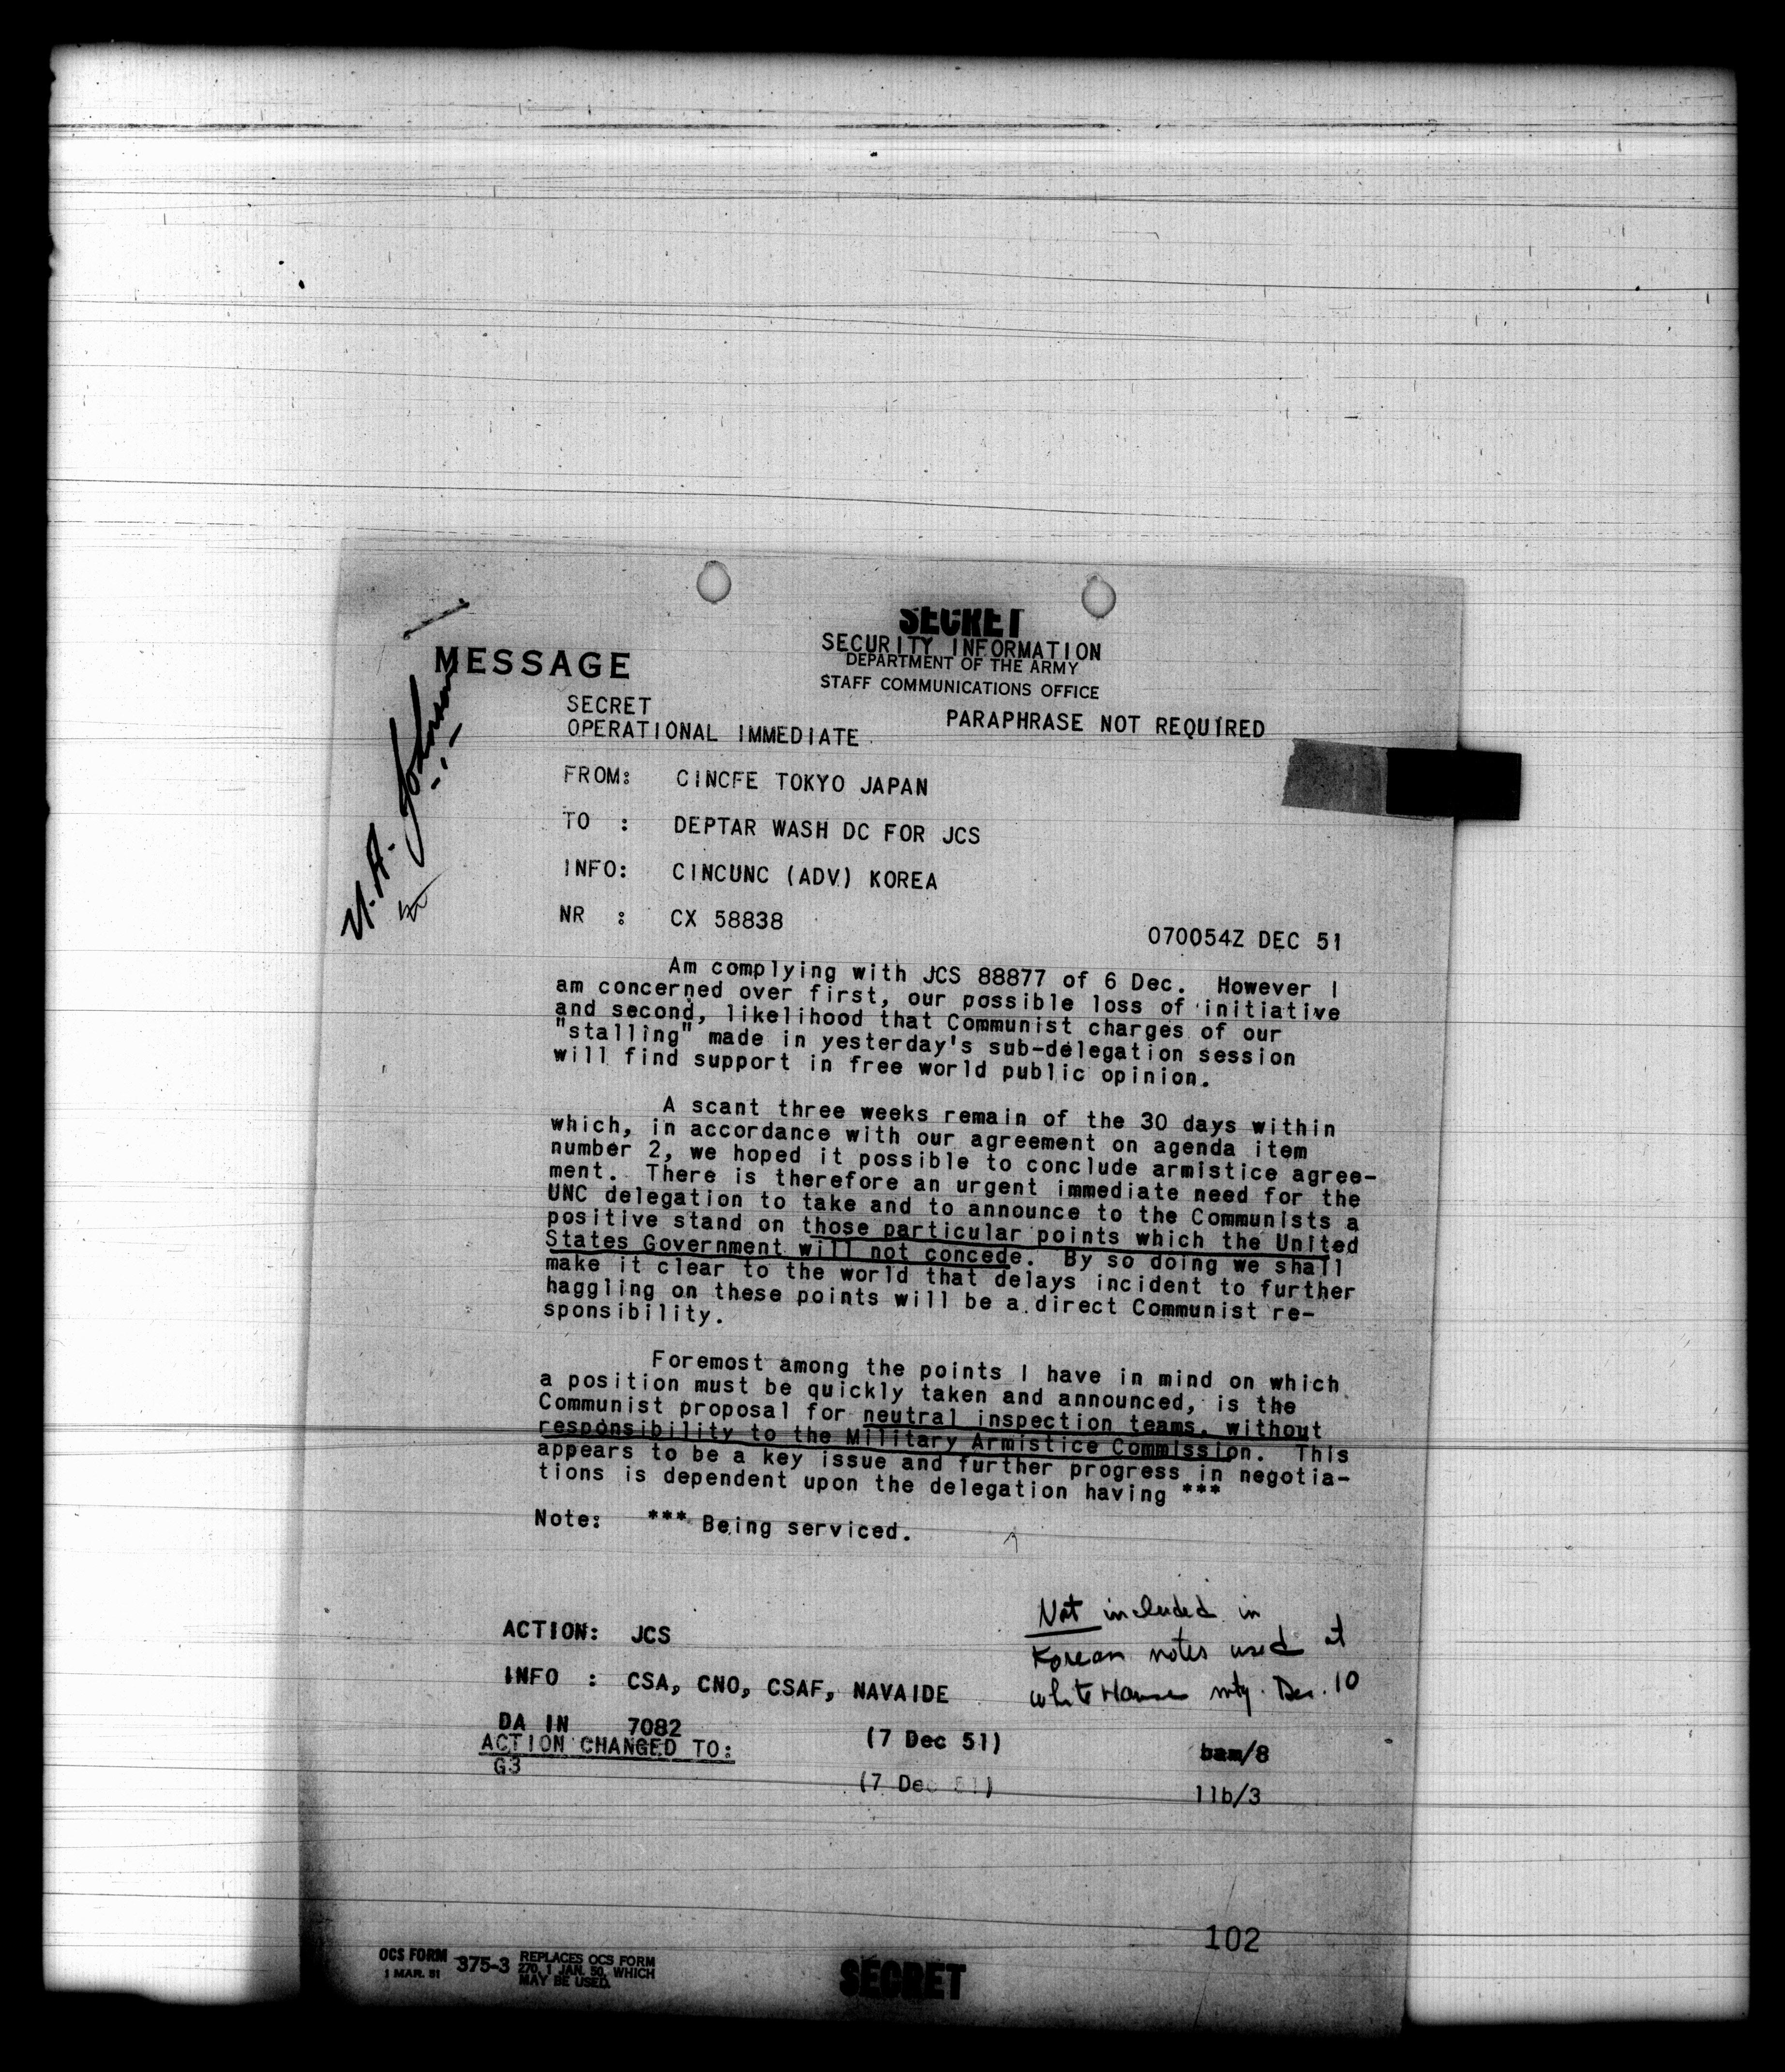 SECRET
SECURITY INFORMATION
MESSAGE
DEPARTMENT OF THE ARMY
STAFF COMMUNICATIONS OFFICE
SECRET
OPERATIONAL IMMEDIATE
PARAPHRASE NOT REQUIRED
U.A. Johnson
FROM: CINCFE TOKYO JAPAN
TO : DEPTAR WASH DC FOR JCS
INFO: CINCUNC (ADV) KOREA
NR : CX 58838
070054Z DEC 51
Am complying with JCS 88877 of 6 Dec. However I
am concerned over first, our possible loss of initiative
and second, likelihood that Communist charges of our
"stalling" made in yesterday's sub-delegation session
will find support in free world public opinion.
A scant three weeks remain of the 30 days within
which, in accordance with our agreement on agenda item
number 2, we hoped it possible to conclude armistice agree-
ment. There is therefore an urgent immediate need for the
UNC delegation to take and to announce to the Communists a
positive stand on those particular points which the United
States Government will not concede. By so doing we shall
make it clear to the world that delays incident to further
haggling on these points will be a direct Communist re-
sponsibility.
Foremost among the points I have in mind on which
a position must be quickly taken and announced, is the
Communist proposal for neutral inspection teams, without
responsibility to the Military Armistice Commission. This
appears to be a key issue and further progress in negotia-
tions is dependent upon the delegation having ***
Note: *** Being serviced.
Not included in
Korean notes used at
White House mtg. Dec. 10
ACTION: JCS
INFO : CSA, CNO, CSAF, NAVAIDE
DA IN 7082 (7 Dec 51) bam/8
ACTION CHANGED TO:
G3 (7 Dec 51) llb/3
102
OCS FORM 375-3 REPLACES OCS FORM
1 MAR. 51 270, 1 JAN. 50, WHICH
MAY BE USED.
SECRET